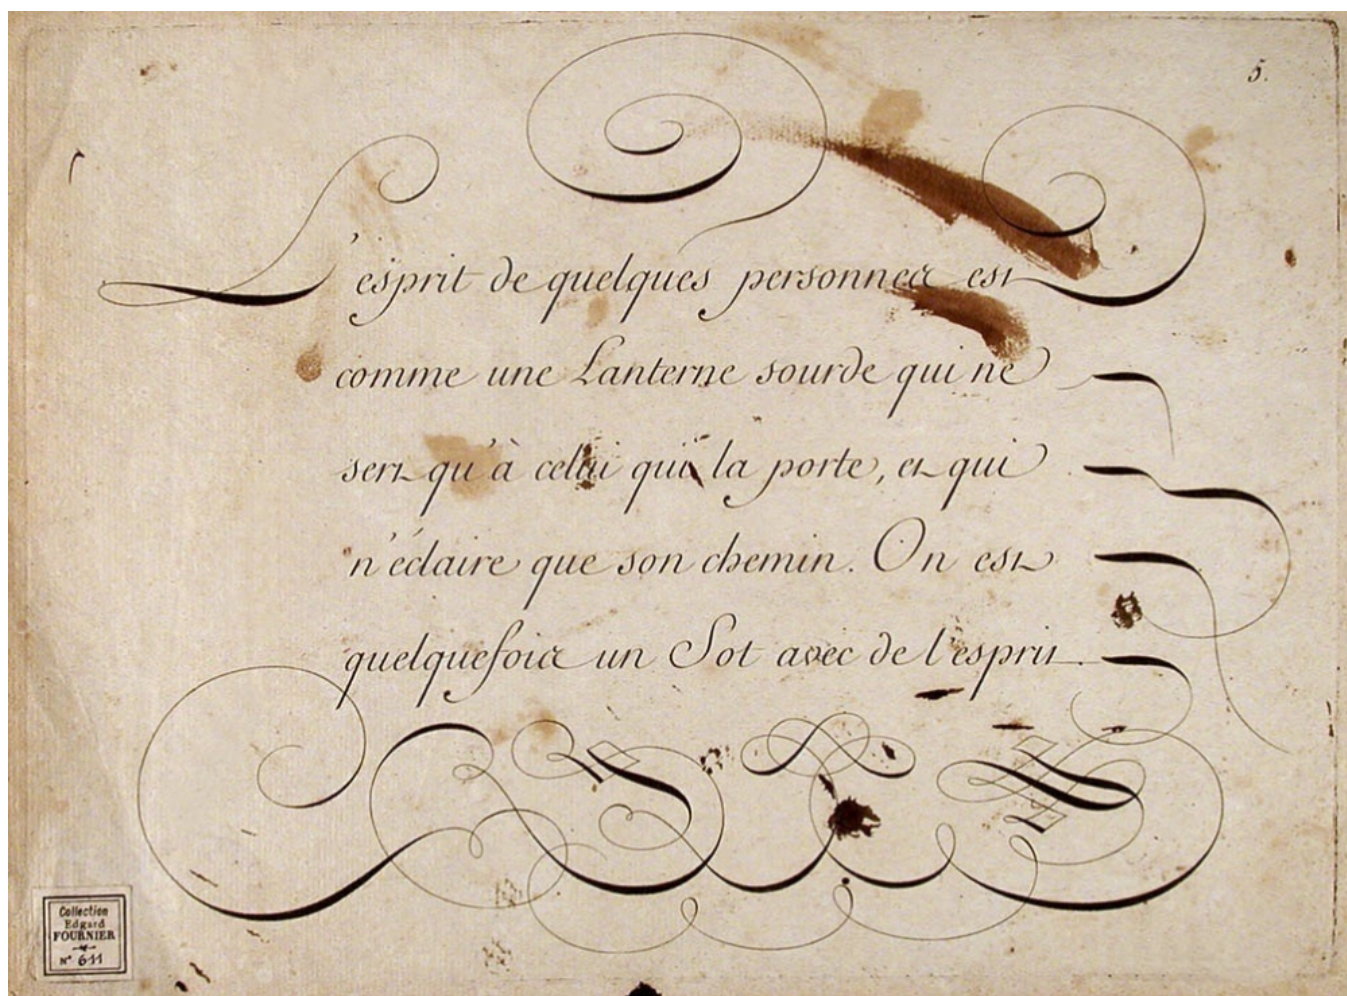 5.
L'esprit de quelques personnes est
comme une Lanterne sourde qui ne
sert qu'à celui qui la porte, et qui
n'éclaire que son chemin. On est
quelquefois un Sot avec de l'esprit.
Collection
Edgard
FOURNIER
N° 611